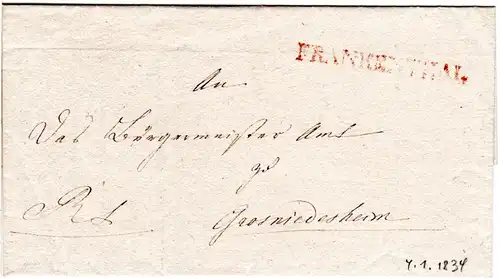 FRANKENTHAL
An
Das Bürgermeister Amt
zu
Grosniedesheim
4.1.1834